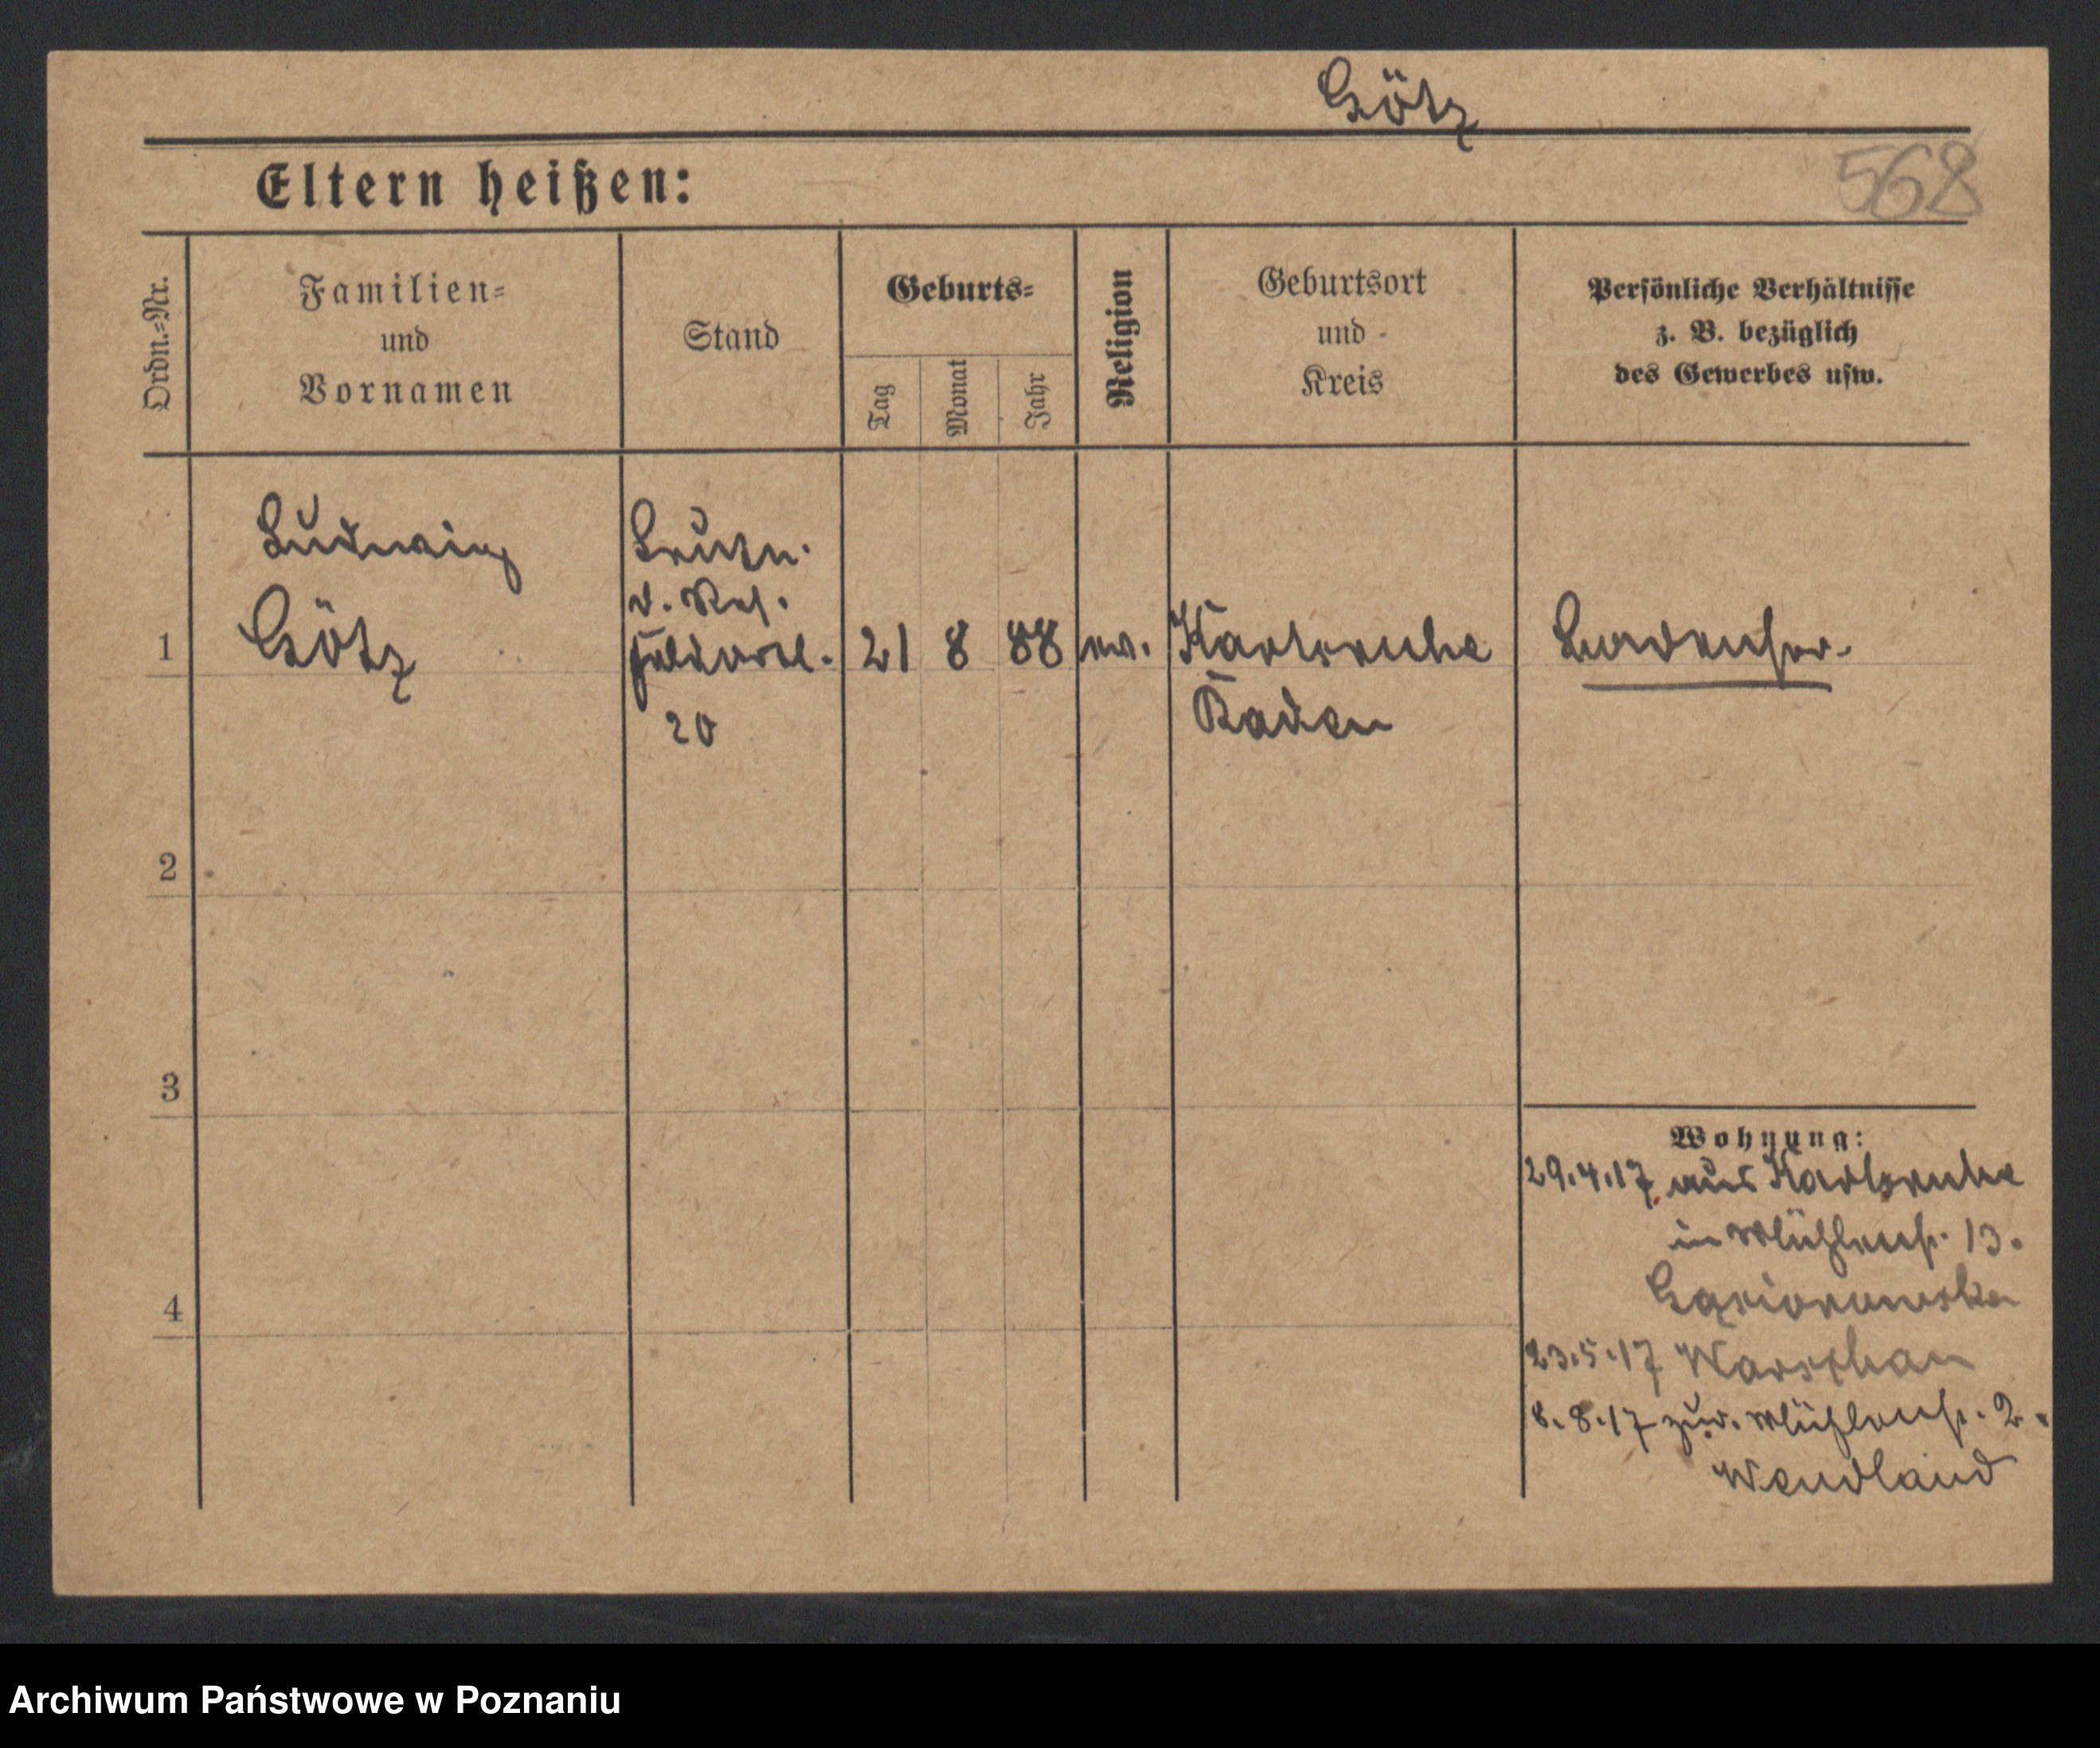 Götz
Eltern heißen:
568
Ordn.-Nr.
Familien-
und
Vornamen
Stand
Geburts-
Tag
Monat
Jahr
Religion
Geburtsort
und
Kreis
Persönliche Verhältnisse
z. B. bezüglich
des Gewerbes usw.
Ludwig
Götz
Leutn.
d. Res.
20
1
21
8
88
ev.
Karlsruhe
Baden
2
3
4
Wohnung:
29.4.17 aus Karlsruhe
in Mühlenstr. 13.
Gąsiorowska
23.5.17 Warschau
8.8.17 zur. Mühlenstr. 2.
Wendland
Archiwum Państwowe w Poznaniu